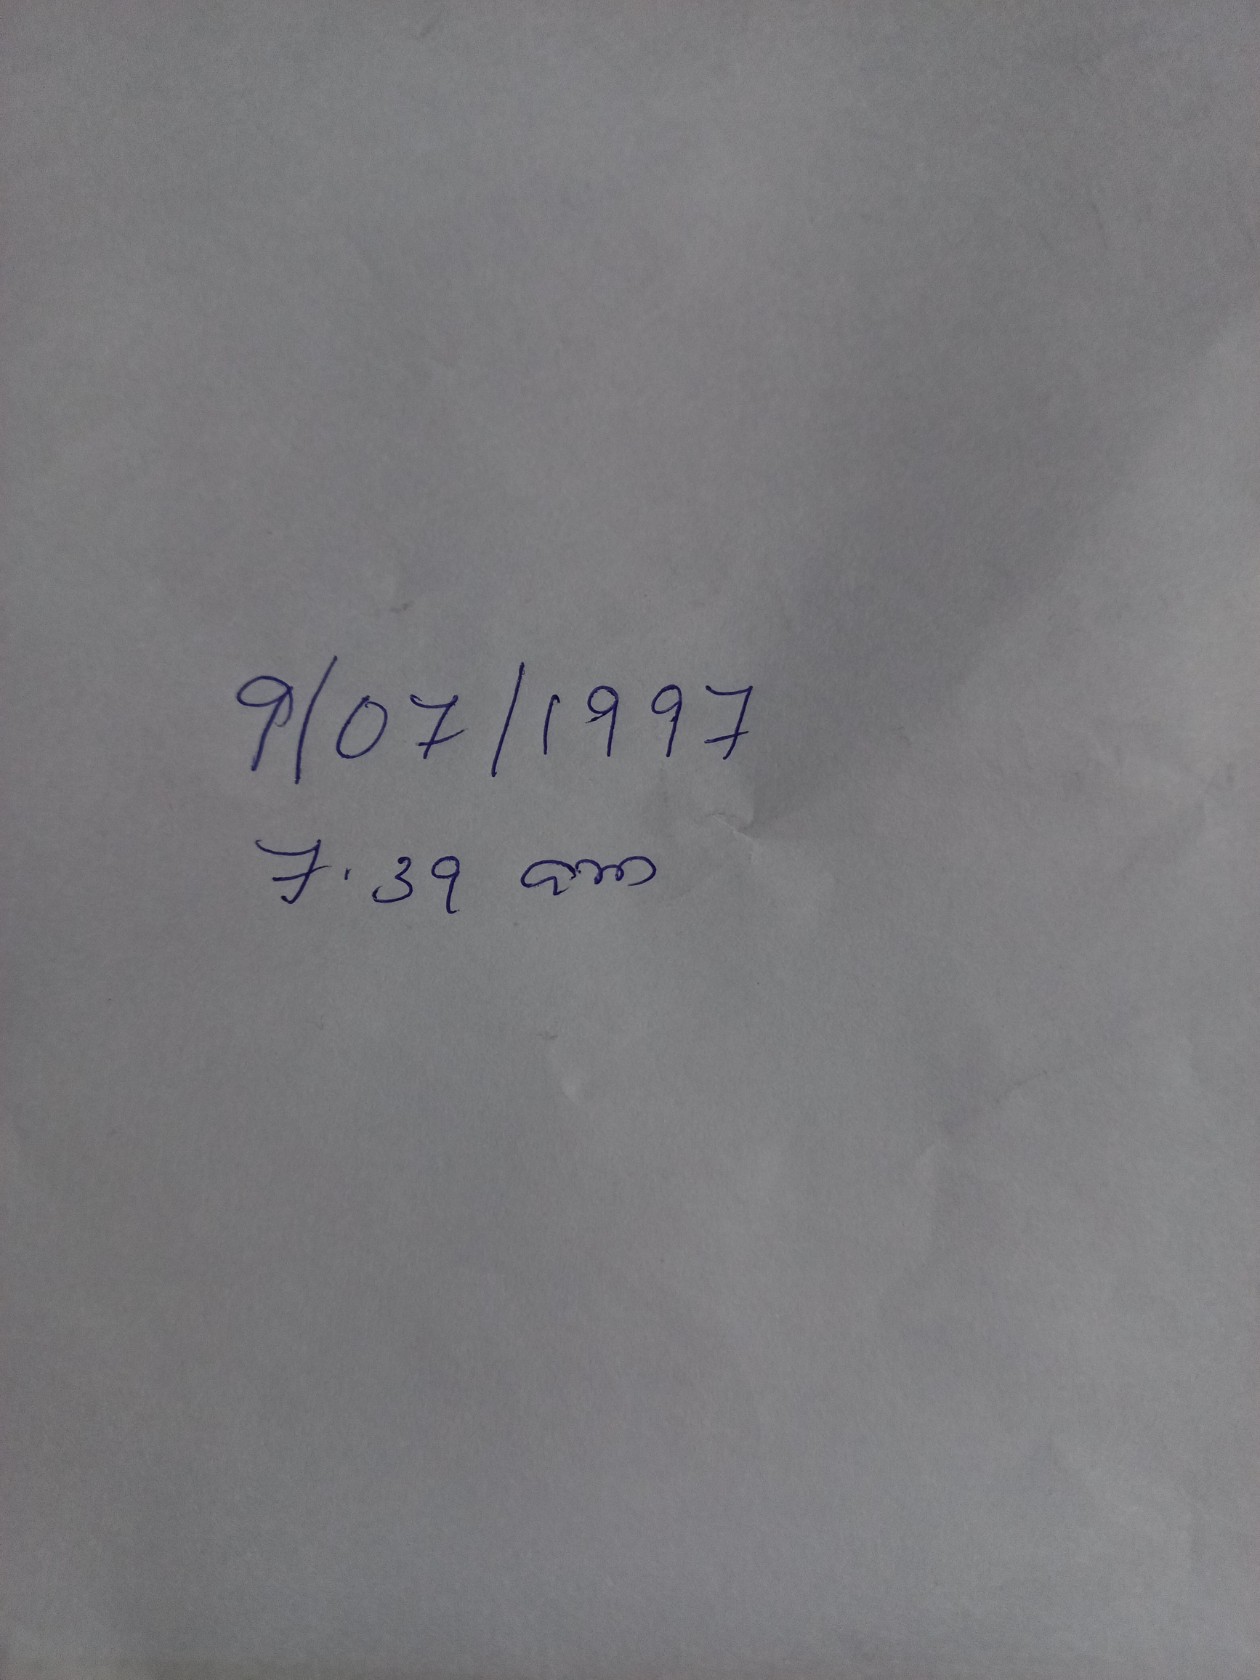 9/07/1997
7.39